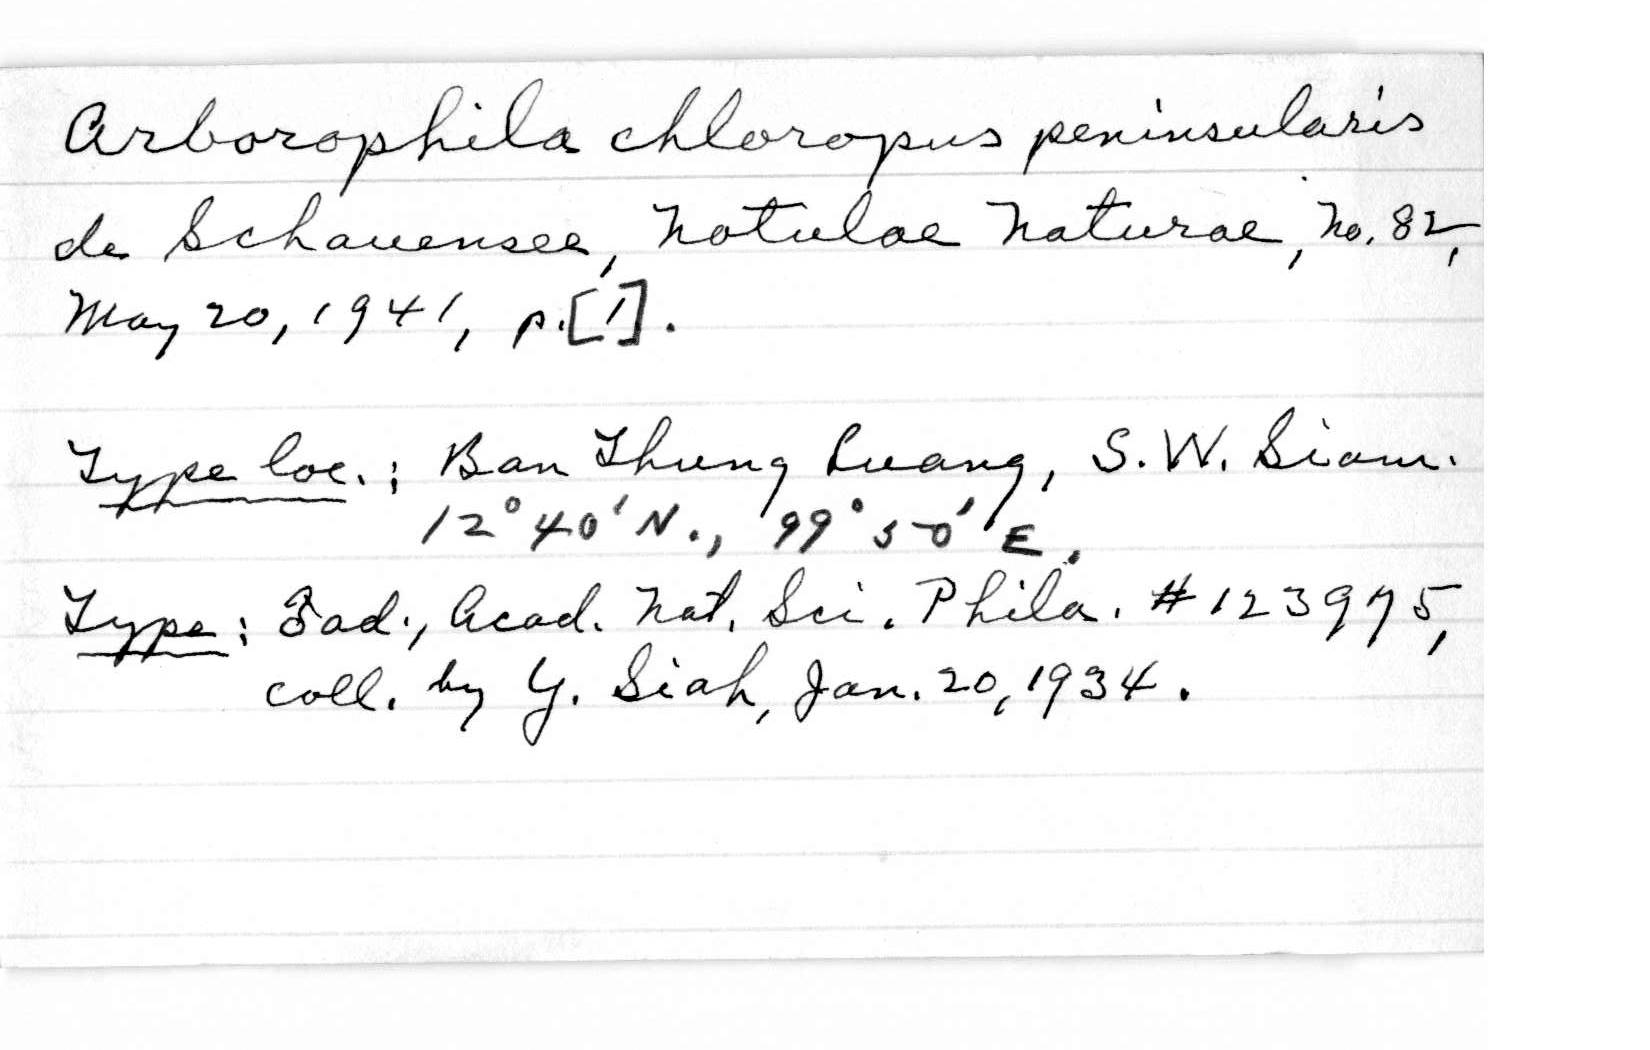 Arborophila chloropus peninsularis
de Schauensee, Notulae Naturae, No. 82,
May 20, 1941, p.[1].
Type loc.: Ban Thung Luang, S.W. Siam.
12°40'N., 99°50'E.
Type: ad., Acad. Nat. Sci. Phila. #123975,
coll. by Y. Siah, Jan. 20, 1934.